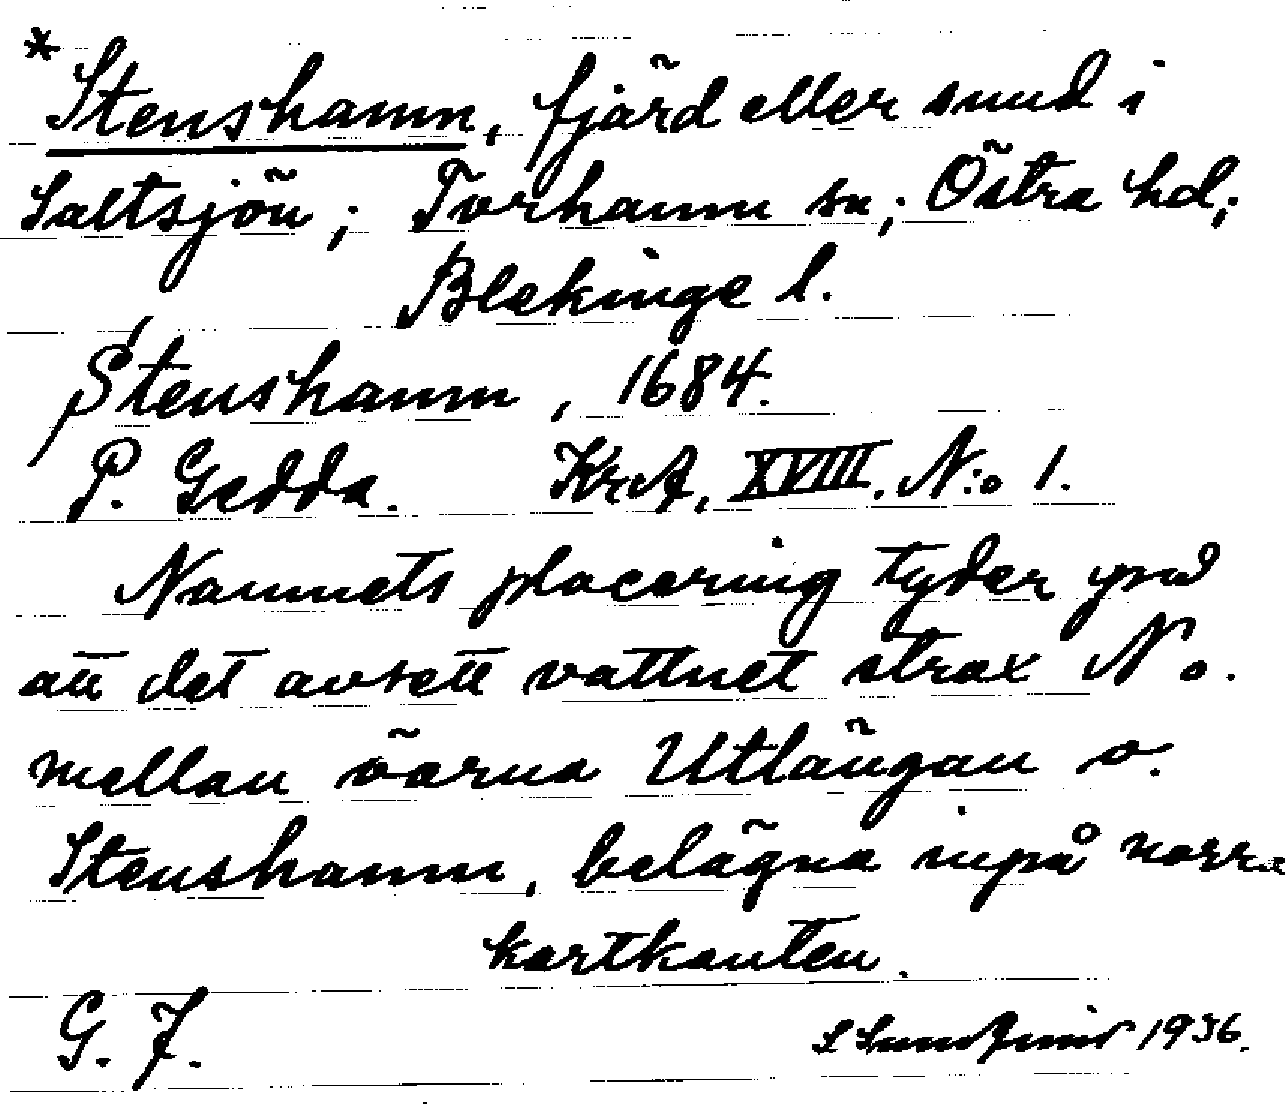 * Stenshamn, fjärd eller sund i
Saltsjön; Torhamn sn; Östra hd;
Blekinge l.
Stenshamn, 1684.
P. Gedda. KrA, XVIII. N:o 1.
Namnets placering tyder på
att det avsett vattnet strax N o.
mellan öarna Utlängan o.
Stenshamn, belägna inpå norra
kartkanten.
G. F.
1936.